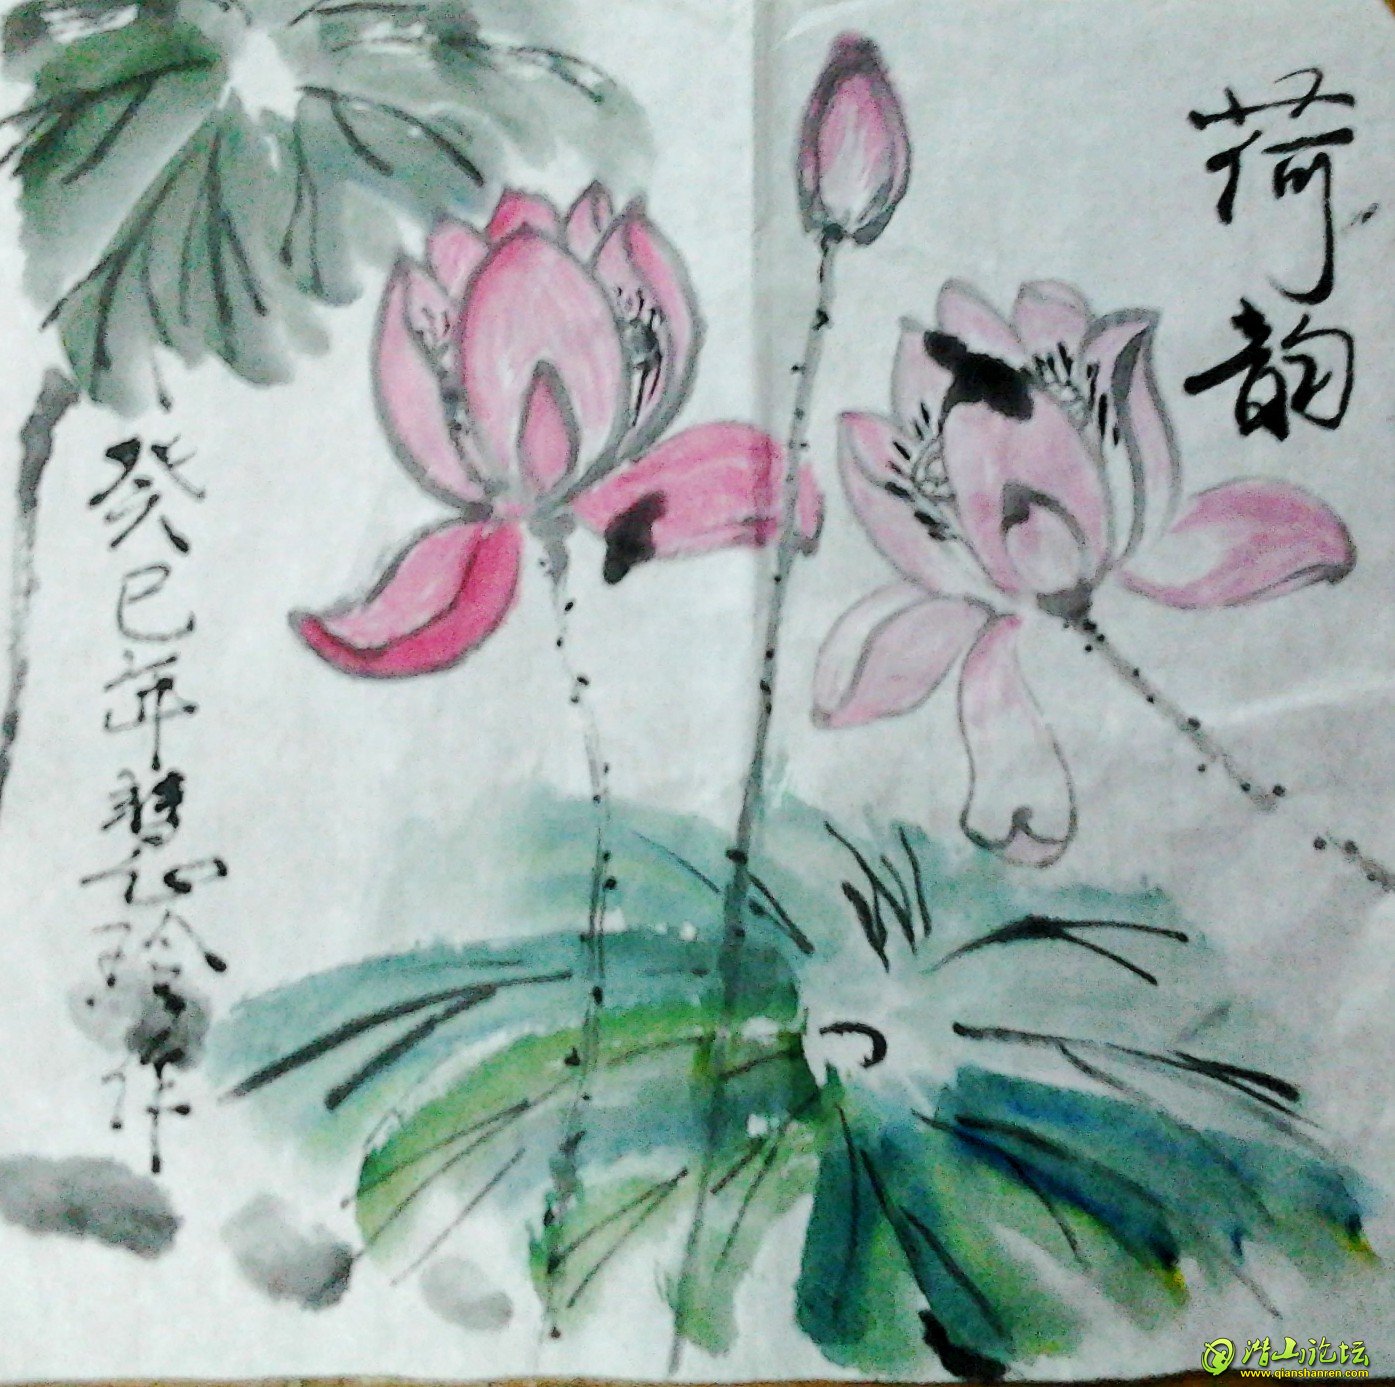 荷韵
癸巳年慧
作
潜山论坛
www.qianshanren.com